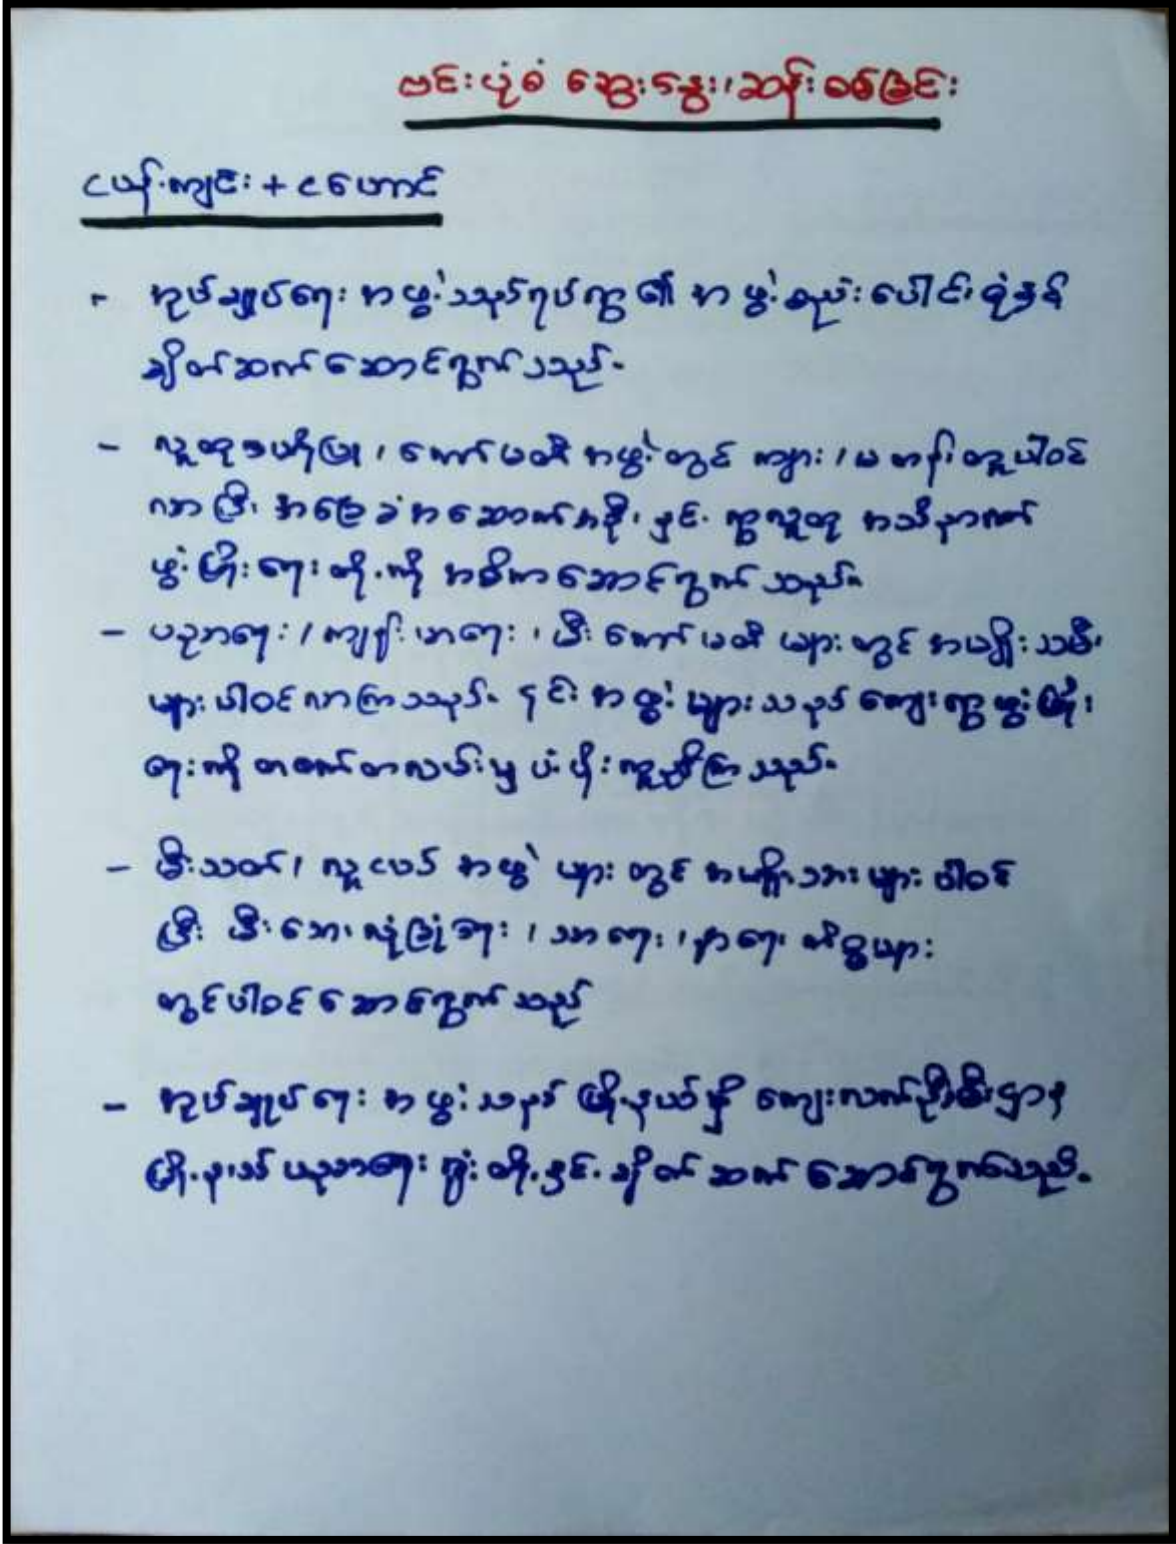 ဗင်းပုံစံ ဆွေးနွေး၊ဆန်းစစ်ခြင်း
ငယန့်ကျင်း + ငဟောင်
- အုပ်ချုပ်ရေး အဖွဲ့သည်ရပ်ရွာ၏ အဖွဲ့စည်းပေါင်းစုံနှင့်
ချိတ်ဆက်ဆောင်ရွက်သည်။
- လူထုအကျိုးပြု၊ ကော်မတီ အဖွဲ့တွင် ကျား၊မ တန်းတူပါဝင်
လာပြီး အခြေခံအဆောက်အဦး နှင့် ရွာလူထု အသိဉာဏ်
ဖွံ့ဖြိုးရေး တို့ကို အဓိကဆောင်ရွက်သည်။
- ပညာရေး၊ ကျန်းမာရေး၊ မီး ကော်မတီ များတွင် အမျိုးသမီး
များပါဝင်လာကြသည်။ ၎င်းအဖွဲ့ များသည် ကျေးရွာဖွံ့ဖြိုး
ရေးကို တစောက်တလမ်းမှ ပံ့ပိုးကူညီကြသည်။
- မီးသတ်၊ လူငယ် အဖွဲ့ များတွင် အမျိုးသားများ ပါဝင်
ပြီး မီးဘေး လုံခြုံရေး၊ သာရေး၊နာရေး ကိစ္စများ
တွင်ပါဝင်ဆောင်ရွက်သည်
- အုပ်ချုပ်ရေး အဖွဲ့သည် မြို့နယ်ရှိ ကျေးလက်ဦးစီးဌာန
မြို့နယ် ပညာရေး ရုံးတို့နှင့် ချိတ်ဆက် ဆောင်ရွက်သည်။